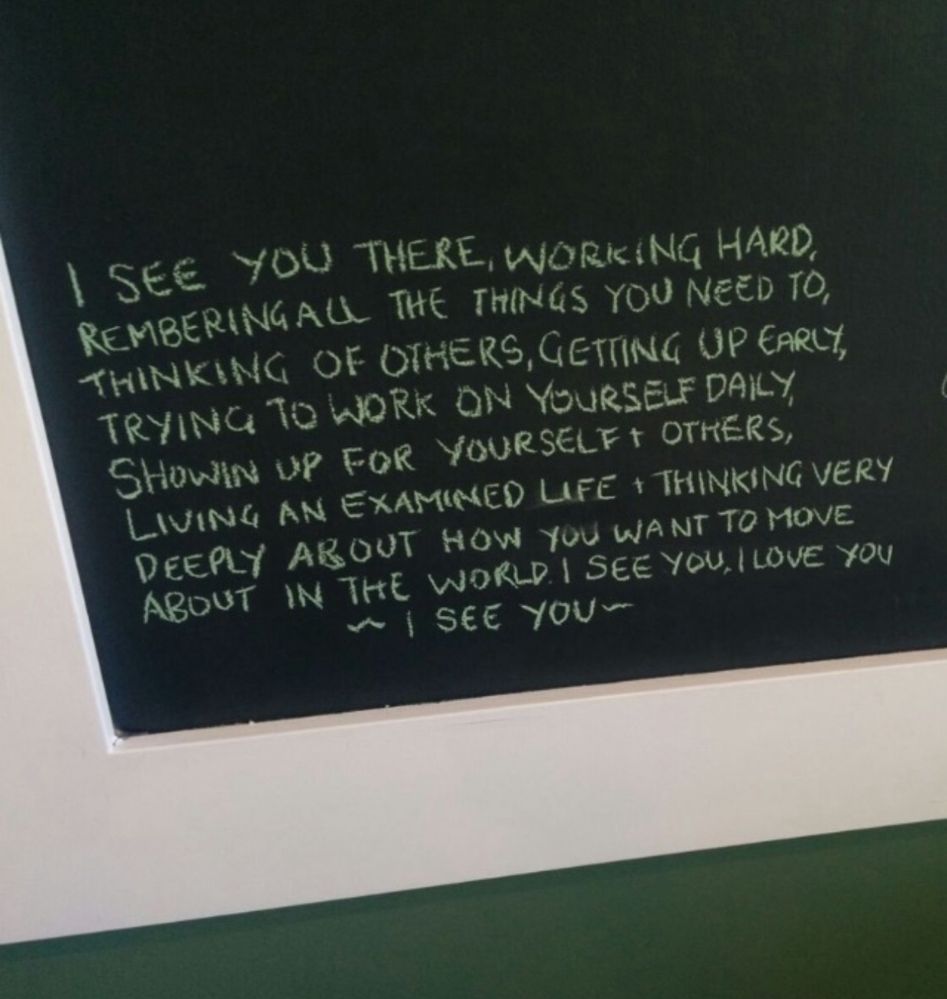 I SEE YOU THERE, WORKING HARD,
REMBERING ALL THE THINGS YOU NEED TO,
THINKING OF OTHERS, GETTING UP EARLY,
TRYING TO WORK ON YOURSELF DAILY,
SHOWIN UP FOR YOURSELF + OTHERS,
LIVING AN EXAMINED LIFE + THINKING VERY
DEEPLY ABOUT HOW YOU WANT TO MOVE
ABOUT IN THE WORLD. I SEE YOU, I LOVE YOU
~ I SEE YOU ~